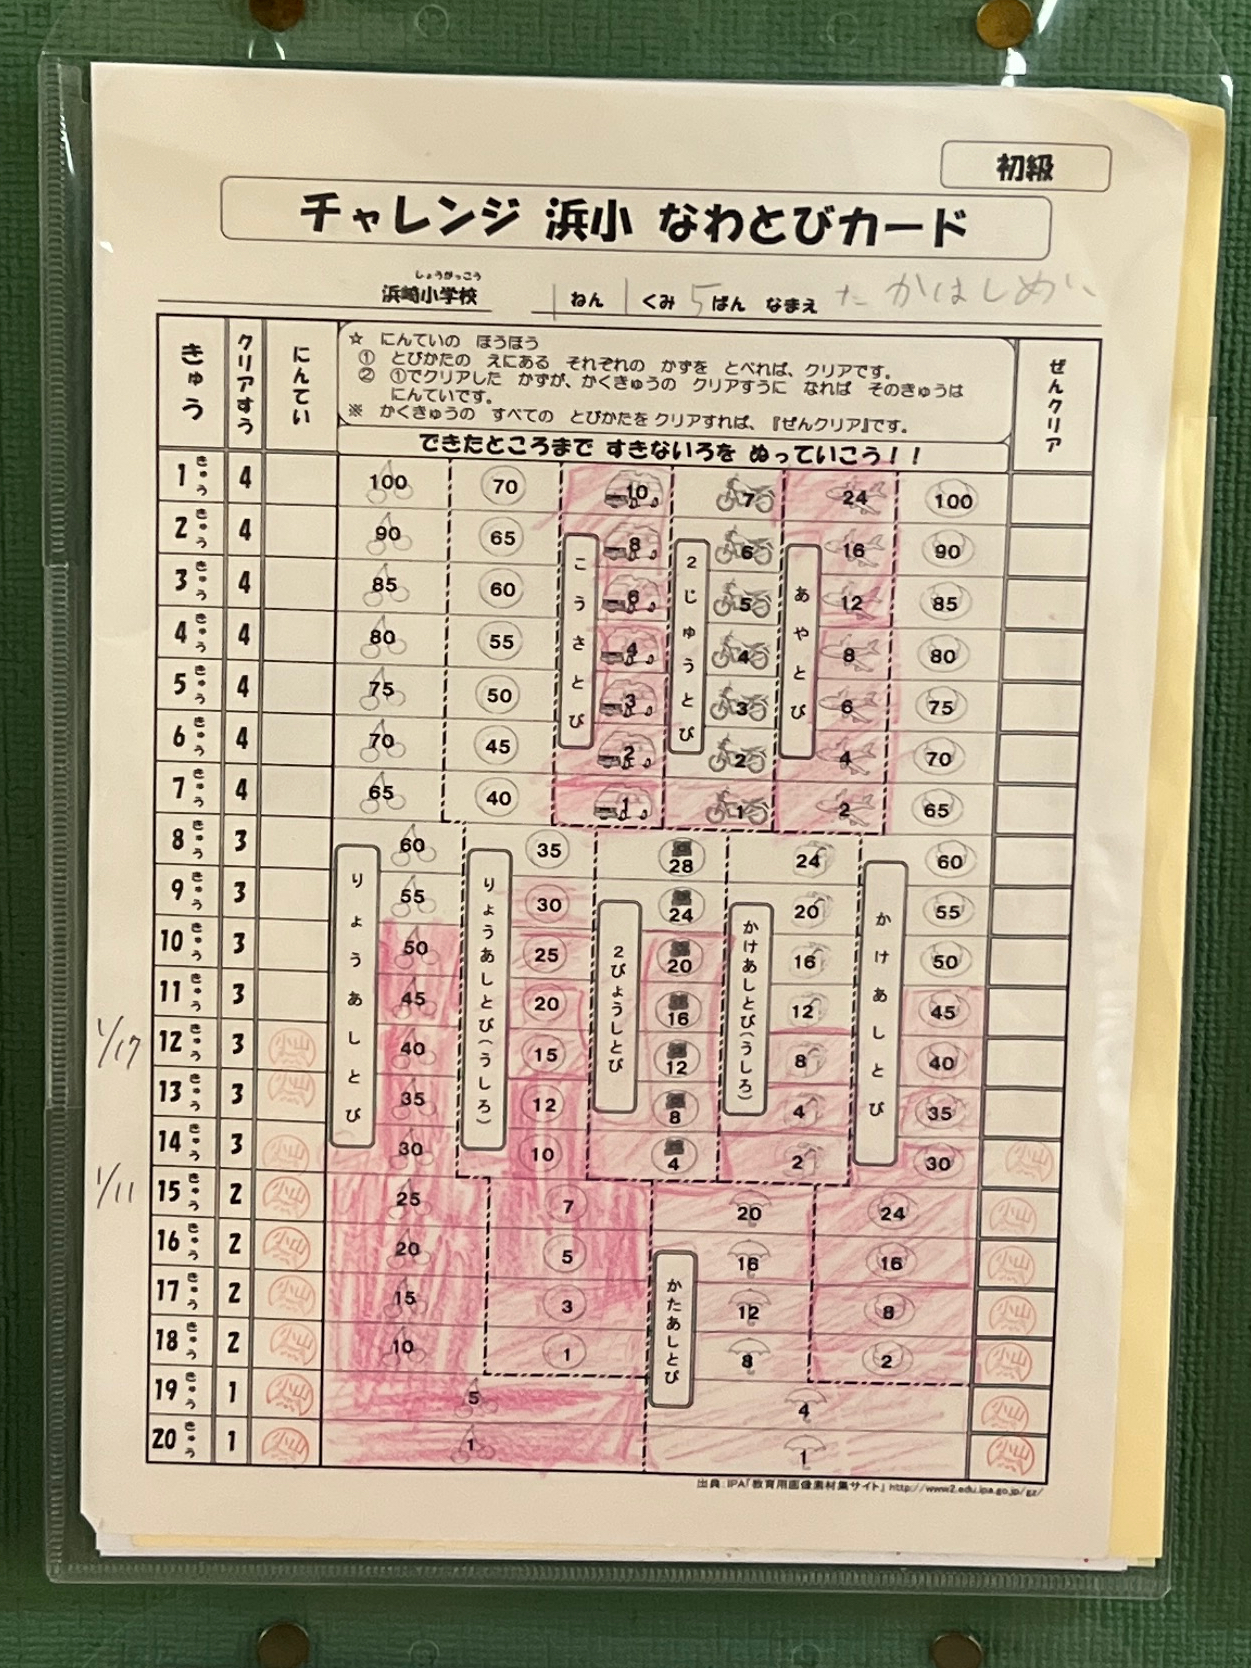 初級
チャレンジ 浜小 なわとびカード
しょうがっこう
浜崎小学校 1 ねん 1 くみ 5 ばん なまえ たかはしめい
きゅう クリアすう にんてい ぜんクリア
☆ にんていの ほうほう
① とびかたの えにある それぞれの かずを とべれば、クリアです。
② ①でクリアした かずが、かくきゅうの クリアすうに なれば そのきゅうは
にんていです。
※ かくきゅうの すべての とびかたを クリアすれば、『ぜんクリア』です。
できたところまで すきないろを ぬっていこう!!
1 きゅう 4 100 70 10 7 24 100
2 きゅう 4 90 65 8 6 16 90
3 きゅう 4 85 60 6 5 12 85
4 きゅう 4 80 55 4 4 8 80
5 きゅう 4 75 50 3 3 6 75
6 きゅう 4 70 45 2 2 4 70
7 きゅう 4 65 40 1 1 2 65
こうさとび
2じゅうとび
あやとび
8 きゅう 3 60 35 28 24 60
9 きゅう 3 55 30 24 20 55
10 きゅう 3 50 25 20 16 50
11 きゅう 3 45 20 16 12 45
1/17 12 きゅう 3 小山 40 15 12 8 40
13 きゅう 3 小山 35 12 8 4 35
14 きゅう 3 小山 30 10 4 2 30 小山
りょうあしとび
りょうあしとび(うしろ)
2びょうしとび
かけあしとび(うしろ)
かけあしとび
1/11 15 きゅう 2 小山 25 7 20 24 小山
16 きゅう 2 小山 20 5 16 16 小山
17 きゅう 2 小山 15 3 12 8 小山
18 きゅう 2 小山 10 1 8 2 小山
19 きゅう 1 小山 5 4 小山
20 きゅう 1 小山 1 1 小山
かたあしとび
出典:IPA「教育用画像素材集サイト」 http://www2.edu.ipa.go.jp/gz/